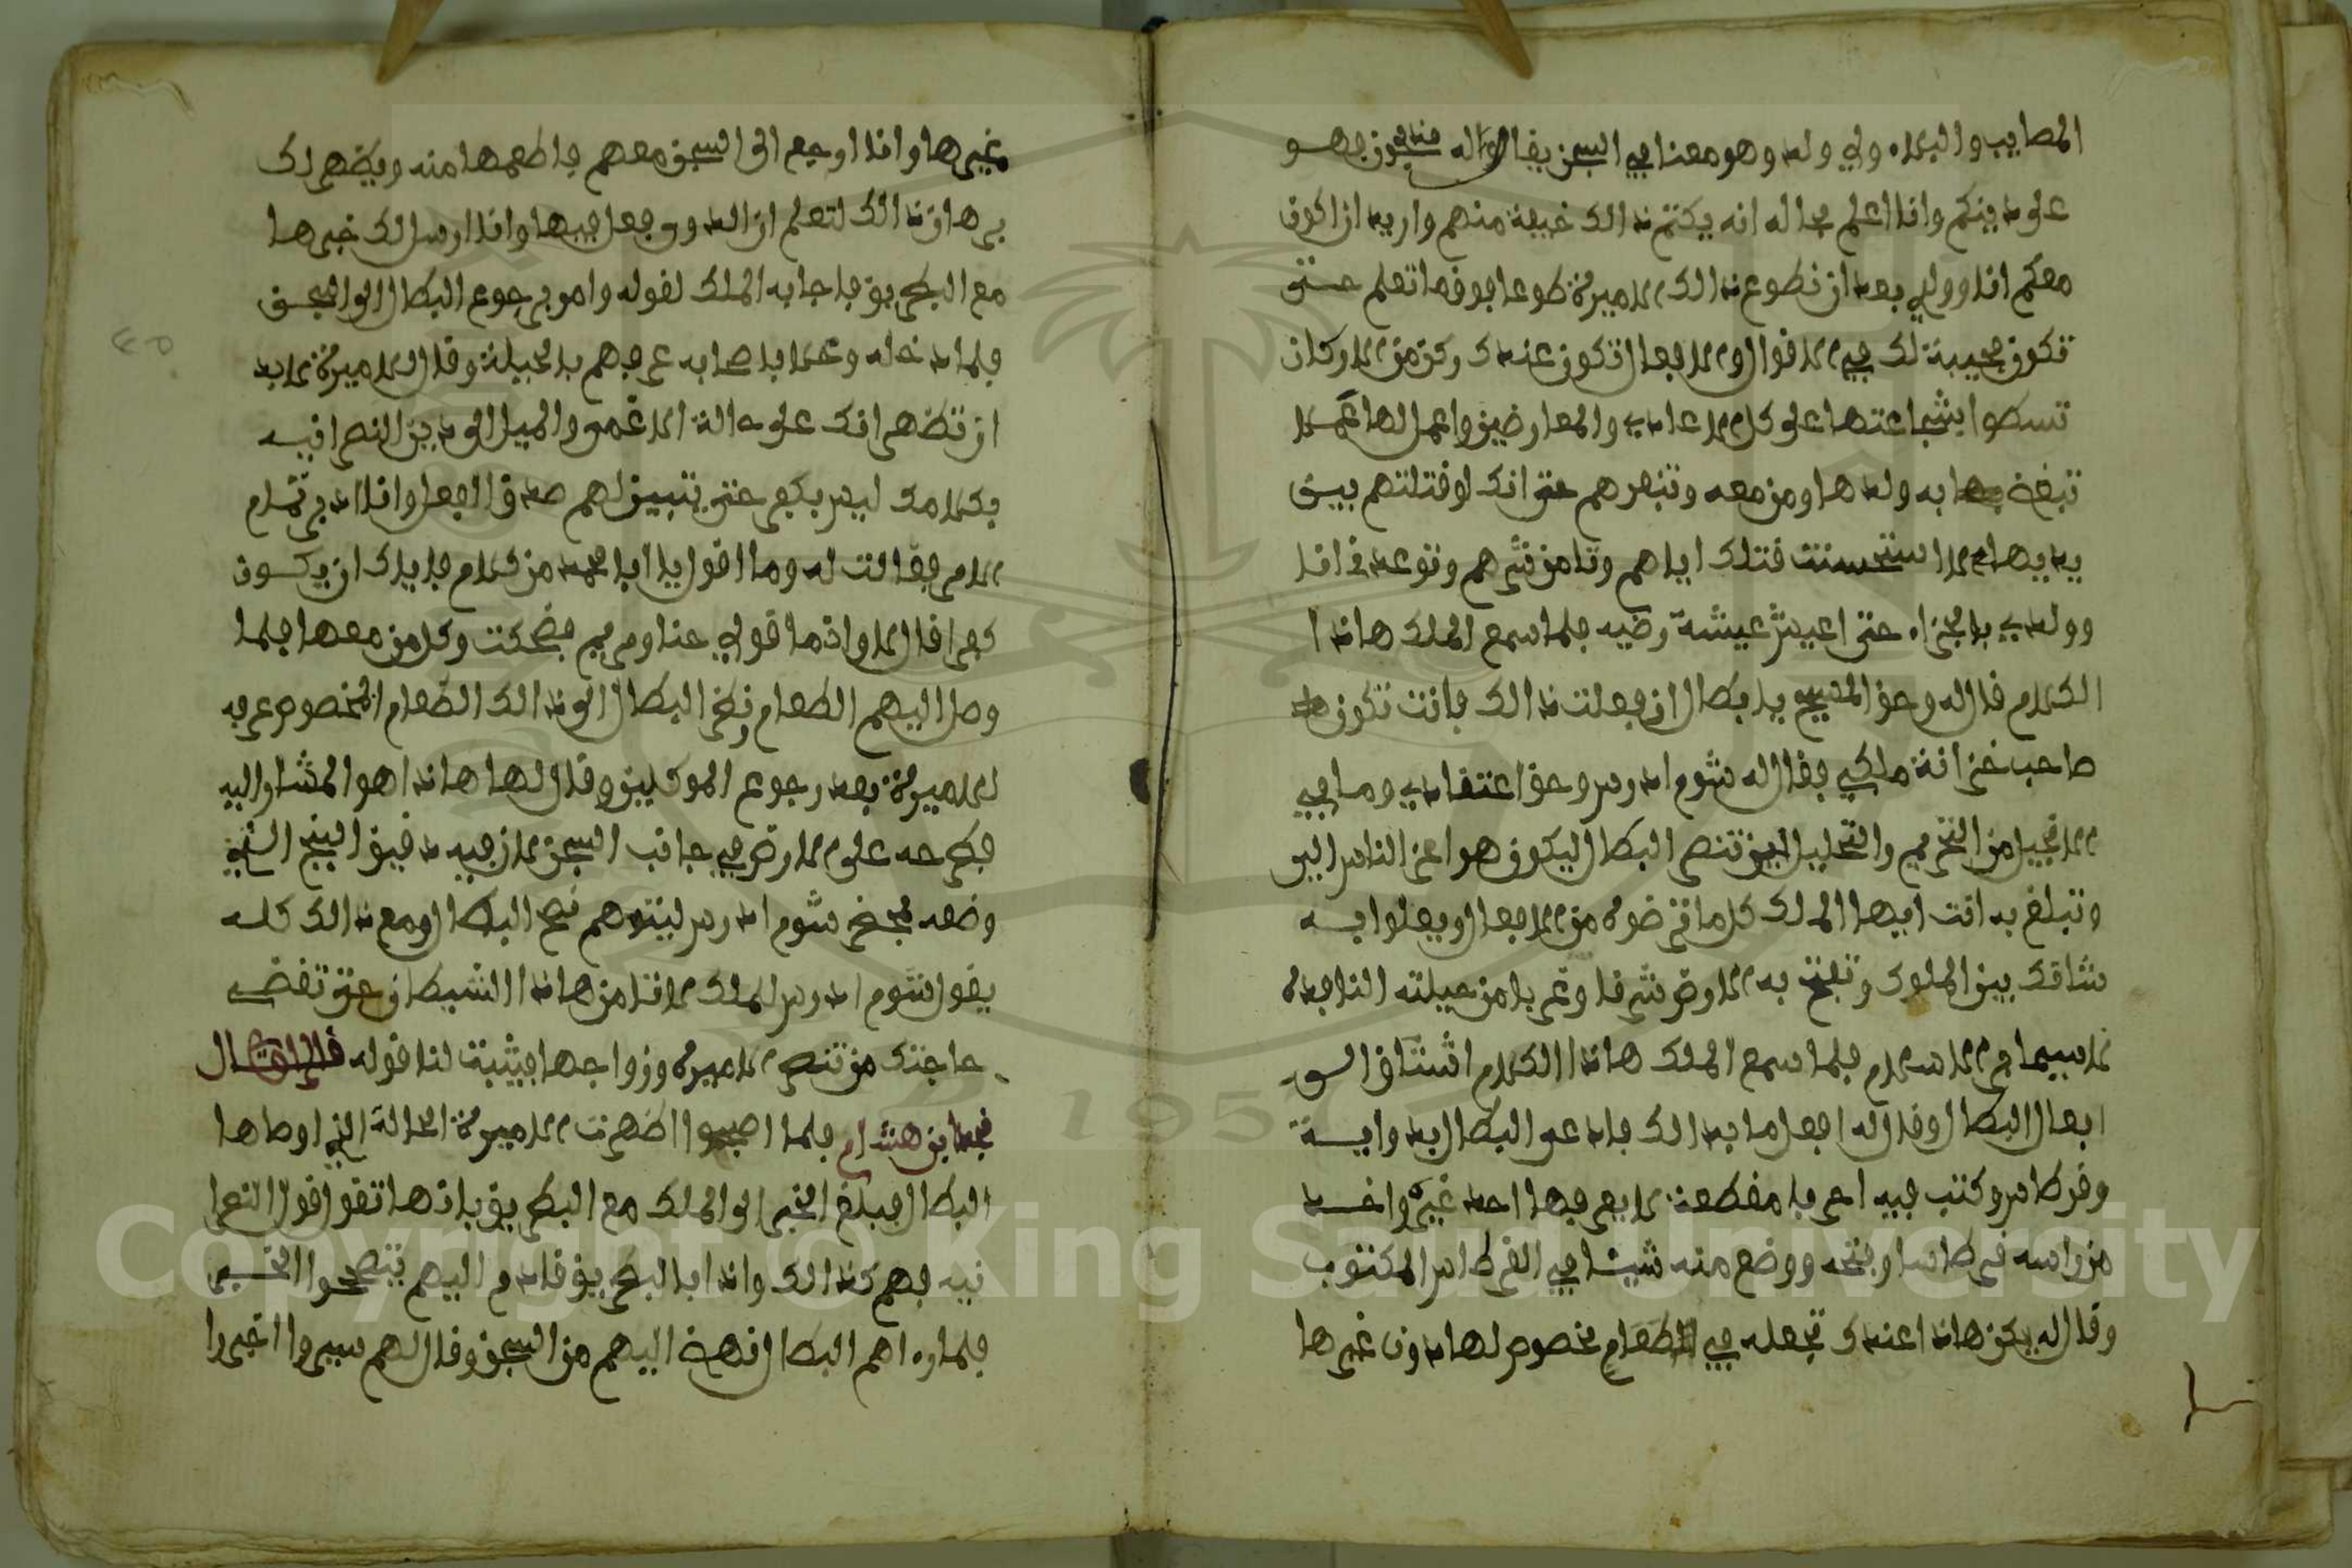 المصايب والبلاء ولي ولد وهو معنا في السجن يقال له فهو
على دينكم وانا اعلم بحاله انه يكتم ذالك خيفة منهم واريد ان اكون
معكم انا وولدي بعد ان نطوع ذالك الاميرة طوعا فوق ما تعلم حتى
تكون محيبة لك في الاقوال والافعال تكون عندك ركن من الاركان
تسطوا بشجاعتها على كل الاعادي والمعارضين واعمل لها عملا
تبغض به ولدها ومن معه وتنهرهم حتى انك لو قتلتهم بين
يديها لاستحسنت قتلك اياهم وتامن شرهم وتوعدني انا
وولدي بالجزاء حتى اعيش عيشة رضيه فلما سمع الملك هاذا
الكلام قال له وحق المسيح يا بطال ان فعلت ذالك فانت تكون
صاحب خزانة ملكي فقال له شوم ادرس وحق اعتقادي وما في
الانجيل من التحريم والتحليل لين تنصر البطال ليكون هو اعز الناس اليك
وتبلغ به انت ايها الملك كل ما ترضوه من الافعال ويعلوا به
شانك بين الملوك وتفتح به الارض شرقا وغربا من حيلته النافدة
لا سيما في الاسلام فلما سمع الملك هاذا الكلام اشتاق الى
افعال البطال وقال له افعل ما بدالك فادعى البطال بدواية
وقرطاس وكتب فيه احرفا مقطعة لا يعرفها احد غيره واخد
من راسه قرطاسا وفتحه ووضع منه شيئا في القرطاس المكتوب
وقال له يكن هاذا عندك تجعله في الطعام مخصوص لها دون غيرها
وغيرها وانا ارجع الى السجن معهم فاطعمها منه ويظهر لك
برهان ذالك لتعلم ان الدوى فعل فيها وانا ارسل لك خبرها
مع البطريق فاجابه الملك لقوله وامر برجوع البطال الى السجن
فلما دخله وعلما باصحابه عرفهم بالحيلة وقال للاميرة لابد
ان تظهر انك على حالة الاغمى والميل الى دين النصرانيه
بكلامك ليس بكفر حتى يتبين لهم صدق الفعل وانا ادبر تمام
الامر فقالت له وما اقول يا ابا محمد من كلام فاياك ان يكون
كفرا قال لا وانما قولي حنا ومريم فضحكت وكل من معها فلما
وصل اليهم الطعام ونظر البطال الى ذالك الطعام المخصوص عرفه
للاميرة بعد رجوع الموكلين وقال لها هاذا هو المشار اليه
فطرحه على الارض في جانب السجن لان فيه دقيق البنج الذي
وضعه بمحضر شوم ادرس لينتوهم نصح البطال ومع ذالك كله
يقول شوم ادرس للملك لا تامن هاذا الشيطان حتى تقضي
حاجتك من تنصر الاميرة وزواجها فيثبت لنا قوله قال
نجد ابن هشام فلما اصبحوا اظهرت الاميرة الحالة التي اوصاها
البطال فبلغ الخبر الى الملك مع البطريق بانها تقول قول النصرا
نيه فهم كذالك واذا بالبطريق قادم اليهم يتصحوا الخبر
فلما رءاهم البطال نهض اليهم من السجن وقال لهم سيروا اخبروا